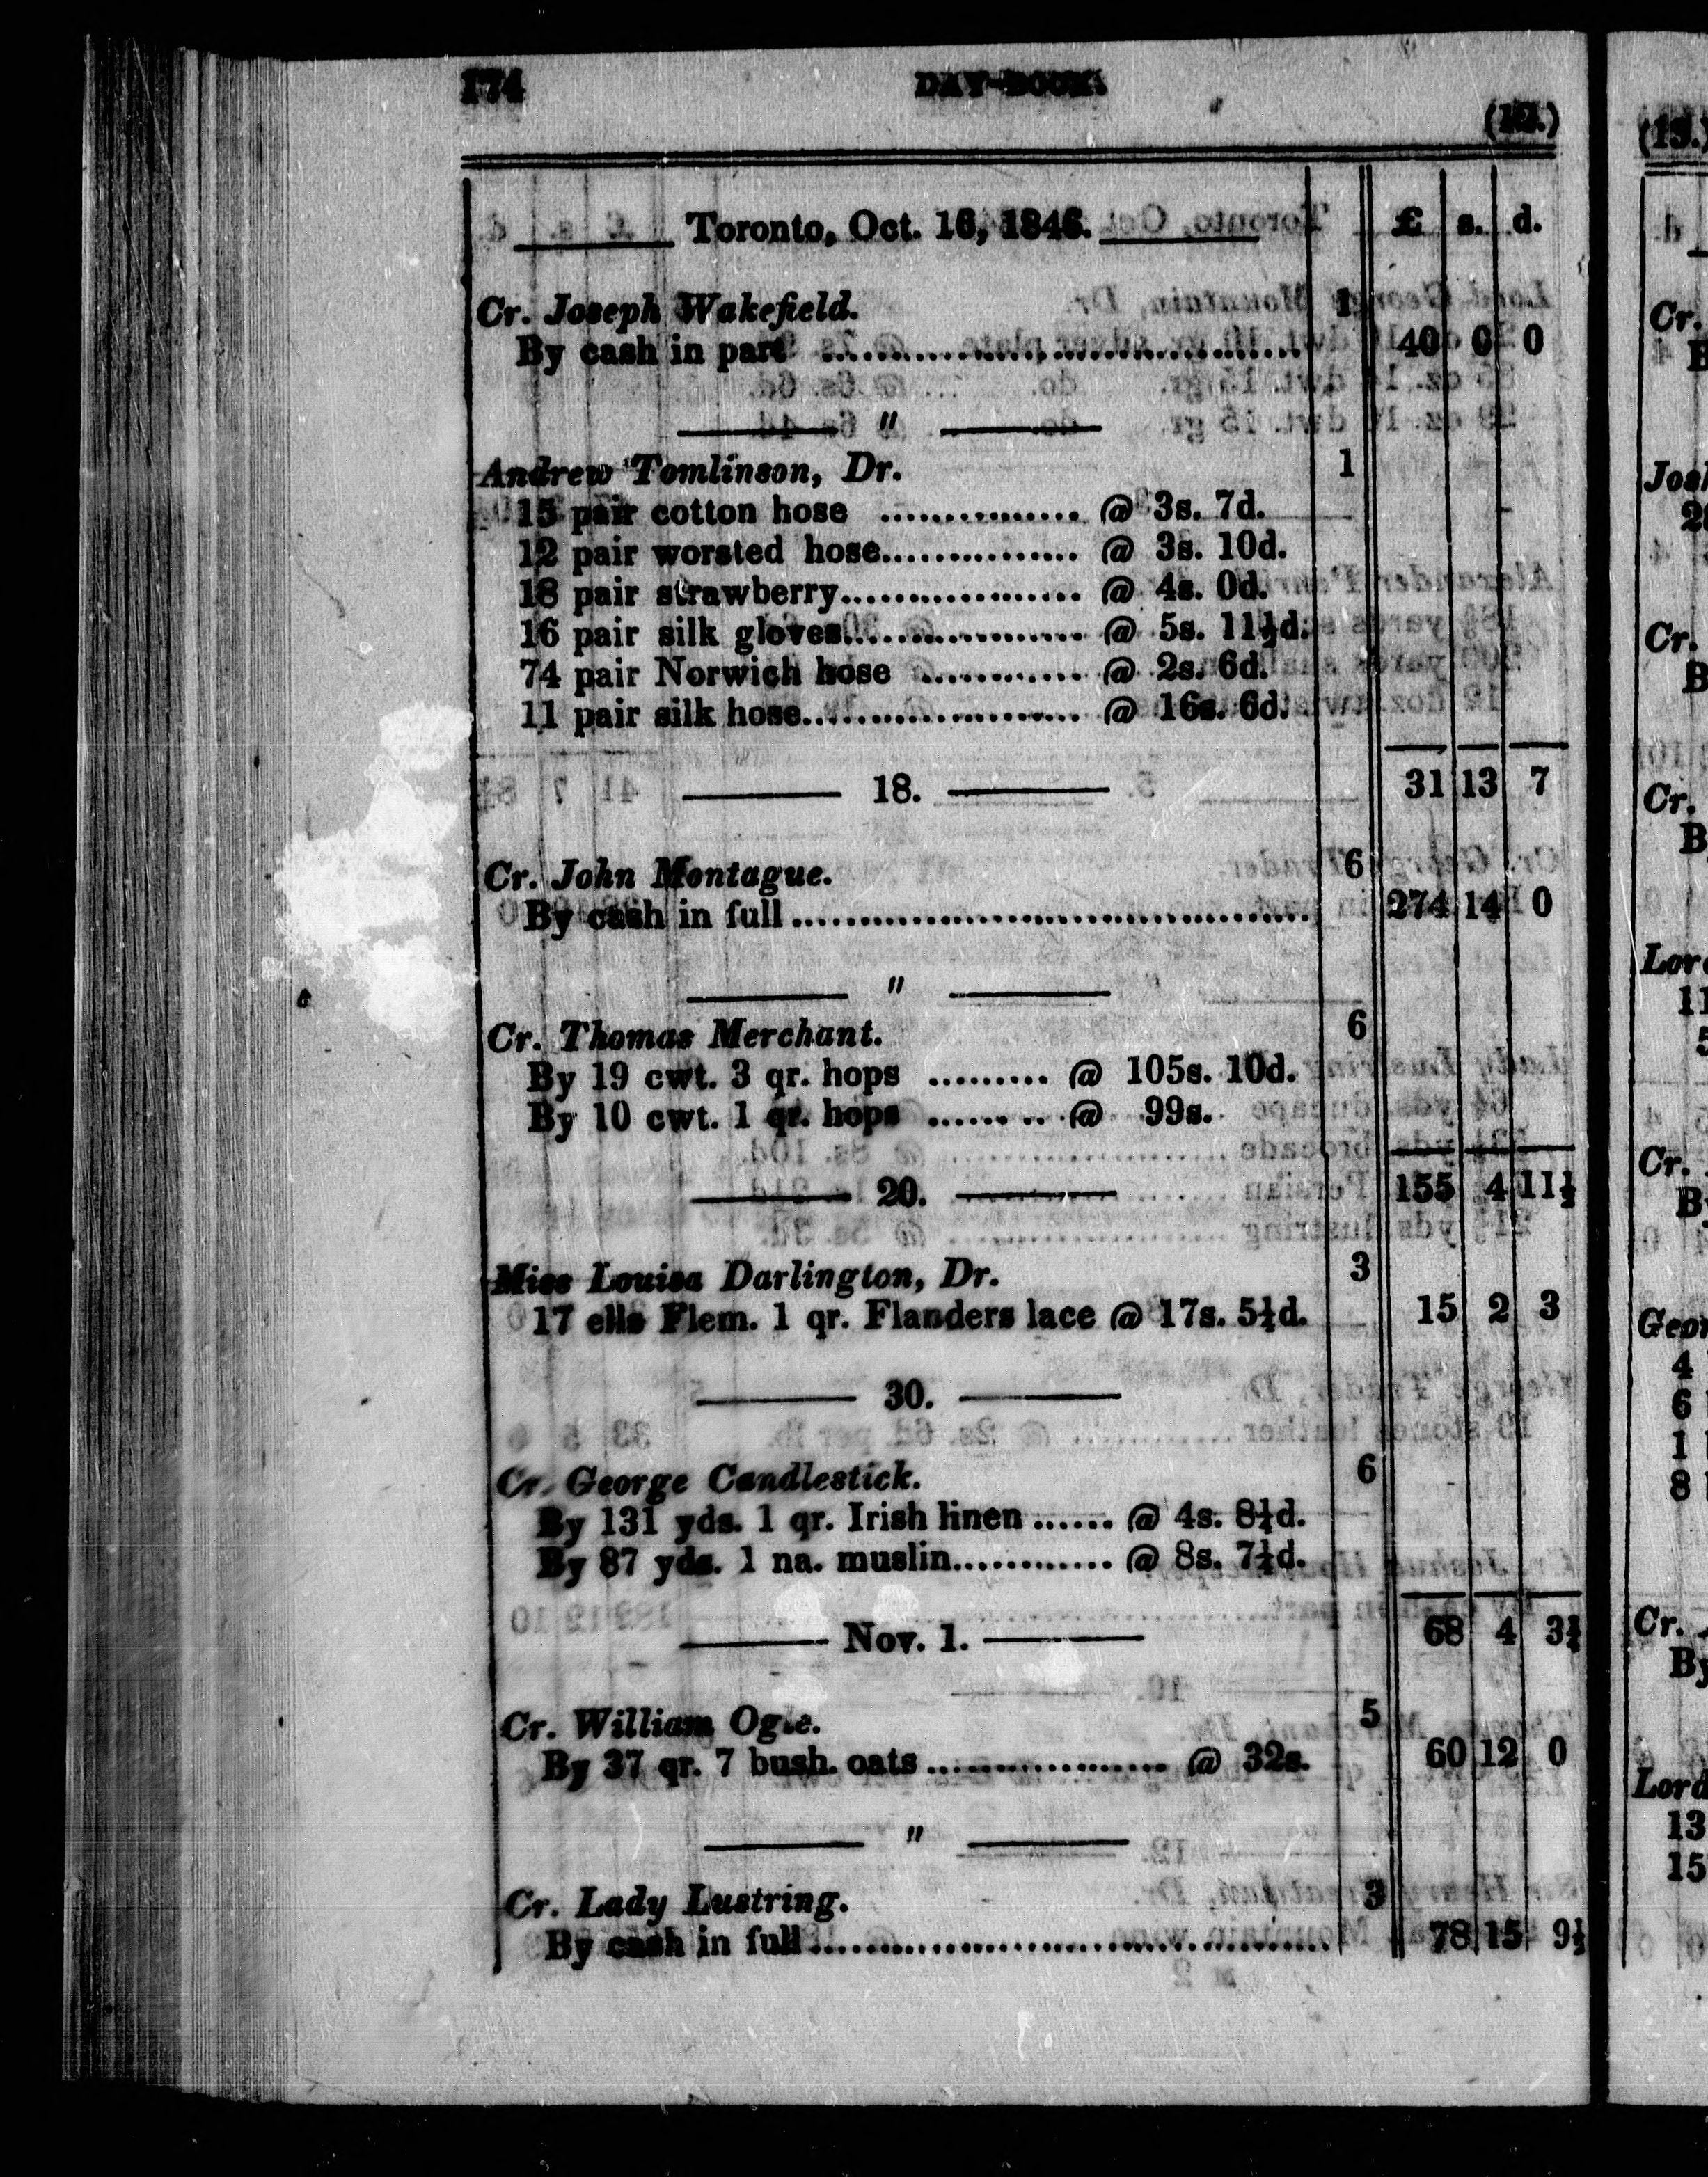 174 DAY-BOOK.
(12.)
Toronto, Oct. 16, 1846. £ s. d.
Cr. Joseph Wakefield. 1
By cash in part 40 0 0
"
Andrew Tomlinson, Dr. 1
15 pair cotton hose @ 3s. 7d.
12 pair worsted hose @ 3s. 10d.
18 pair strawberry @ 4s. 0d.
16 pair silk gloves @ 5s. 11½d.
74 pair Norwich hose @ 2s. 6d.
11 pair silk hose @ 16s. 6d.
18. 31 13 7
Cr. John Montague. 6
By cash in full 274 14 0
"
Cr. Thomas Merchant. 6
By 19 cwt. 3 qr. hops @ 105s. 10d.
By 10 cwt. 1 qr. hops @ 99s.
20. 155 4 11½
Miss Louisa Darlington, Dr. 3
17 ells Flem. 1 qr. Flanders lace @ 17s. 5¼d. 15 2 3
30.
Cr. George Candlestick. 6
By 131 yds. 1 qr. Irish linen @ 4s. 8¼d.
By 87 yds. 1 na. muslin @ 8s. 7¼d.
Nov. 1. 68 4 3¼
Cr. William Ogle. 5
By 37 qr. 7 bush. oats @ 32s. 60 12 0
"
Cr. Lady Lustring. 3
By cash in full 78 15 9½
(13.)
Cr.
Cr.
Cr.
Cr.
4
6
1
8
Cr.
By
Lord
13
15